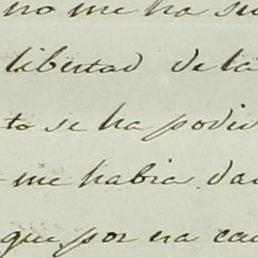 no me ha su
libertad de la
to se ha podid
me habia da
que, por na ca